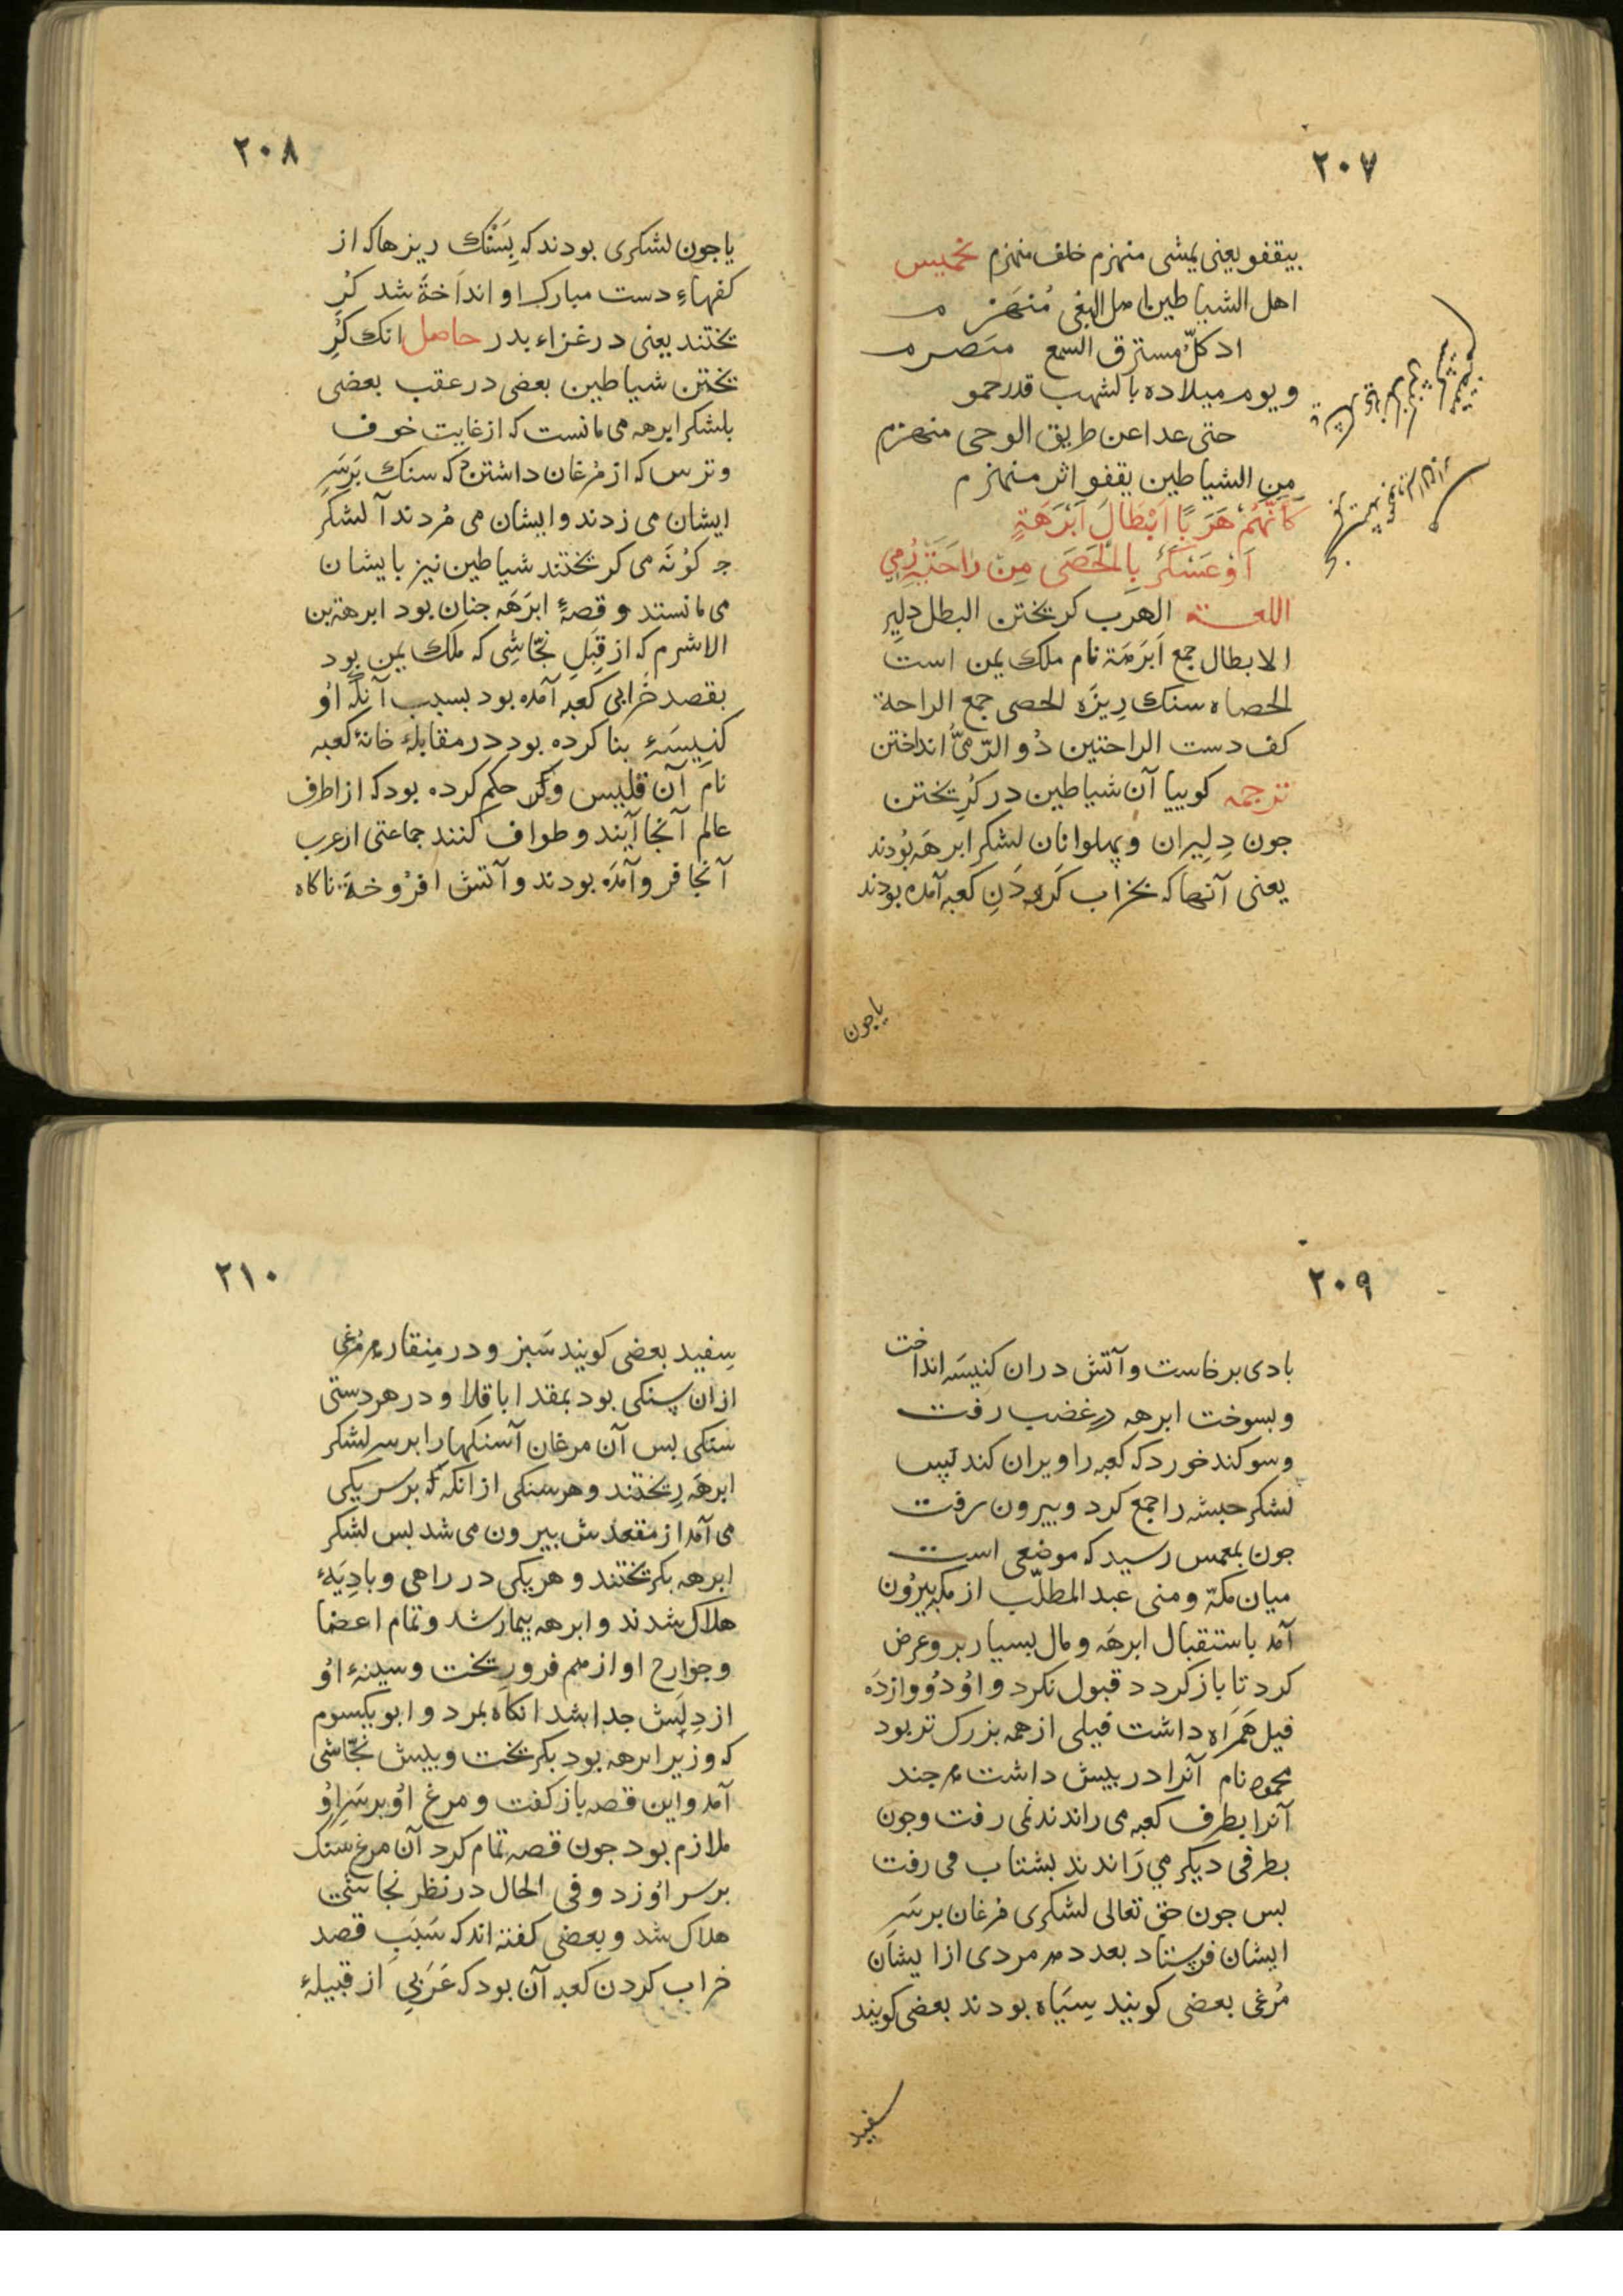 ٢٠٧
بيقفو يعنى يمشى منهزم خلف منهزم تخميس
اهل الشياطين اهل البغى مُنهَزم
اذ كلّ مسترق السمع منصرم
و يوم ميلاده بالشهب قد رحمو
حتى غدا عن طريق الوحى منهزم
مِن الشياطين يقفو اثر منهزم
كَاَنَّهُمْ هَرَبًا اَبْطَالَ اَبْرَهَةٍ
اَوْ عَسْكَرٌ بِالْحَصَى مِنْ رَاحَتَيْهِ رُمِي
اللغــة الهَرَب كريختن البطل دلِيرِ
الابطال جمع اَبَرَهَة نام ملك يمن است
الحصاه سنك رِيزَه الحصى جمع الراحة
كف دست الراحتين دُو الرّمىُ انداختن
ترجمه كوييا آن شياطين در كُريختن
جون دِليران و پهلوانان لشكر ابرهَه بُودند
يعنى آنهاكه بخراب كَردَنِ كعبه آمده بودند
ياجون
٢٠٨
ياجون لشكرى بودند كه بِسَنْك ريزهاكه از
كفهاءِ دست مبارك او انداخةَ شد كُرِ
يختند يعنى در غزاء بدر حاصل انك كُرِ
يختن شياطين بعضى در عقب بعضى
بلشكر ابرهه مى مانست كه از غايت خوف
وترس كه از مُرغان داشتن كه سنك بَرسَرِ
ايشان مى زدند و ايشان مى مُردند آ لشكر
جه كوُنَه مى كريختند شياطين نيز بايشان
مى مانستد و قصهٔ ابرَهَه جنان بود ابرهة بن
الاشرم كه از قِبَلِ نجّاشِى كه ملك يمن بود
بقصد خَرابىِ كَعبه آمده بود بسبب آنكه اوُ
كنيسَهٔ بنا كرده بود در مقابلهٔ خانهٔ كعبه
نام آن قليس و حكم كرده بود كه از اطرف
عالم آنجا آيند و طواف كنند جماعتى از عرب
آنجا فرو آمدَه بودند و آتش افرُوخةَ ناكاه
٢٠٩
بادى برخاست و آتش دران كنيسَه انداخت
و بسوخت ابرهه درغضب رفت
و سوكند خوردكه كعبه را ويران كند پس
لشكر حبشه را جمع كرد و بيرون رفت
جون بمعمس رسيد كه موضعى است
ميان مكة و منى عبد المطلّب از مكه بيرُون
آمد باستقبال ابرهَه و مال بسيار برو عرض
كرد تا باز كردد قبول نكرد و اوُ دُووازدَه
فيل هَمرَاه داشت فيلى از همه بزرك تر بود
محمود نام آنرا در پيش داشت هر جند
آنرا بطرف كعبه مى راندند نمى رفت و جون
بطرفى ديكر مي رَاندند بشتاب مى رفت
بس جون حق تعالى لشكرِى مُرغان برسَرِ
ايشان فرِستاد بعدد هر مردى از ايشان
مُرغى بعضى كويند سِيَاه بودند بعضى كويند
سفيد
٢١٠
سِفيد بعضى كويند سَبز و در مِنقار هر مُرغى
ازان سنكى بود بمقدا باقلا و در هر دستى
سَنكى بس آن مرغان آسنكها را برسر لشكر
ابرهَه رِيختند و هر سنكى از انكه كه برسر يكى
مى آمد از مقعدش بيرون مى شد بس لشكر
ابرهه بكريختند و هر يكى در راهى و بادِيَهٔ
هلاك شدند و ابرهه بيمار شد و تمام اعضا
وجوَارح او از هم فرورِيخت و سينهٔ اوُ
از دِلَش جدا شد انكاه بمرد و ابو يكسوم
كه وزير ابرهه بود بكريخت و بپيش نجّاشى
آمد و اين قصه باز كفت و مرغ اوُ برسَرِ اوُ
ملازم بود جون قصه تمام كرد آن مرغ سنك
برسر اوُ زد و فى الحال در نظر نجاشى
هلاك شد و بعضى كفته اند كه سَبَبِ قصد
خراب كردن كعبه آن بود كه عَرَبىِ از قبيلهٔ